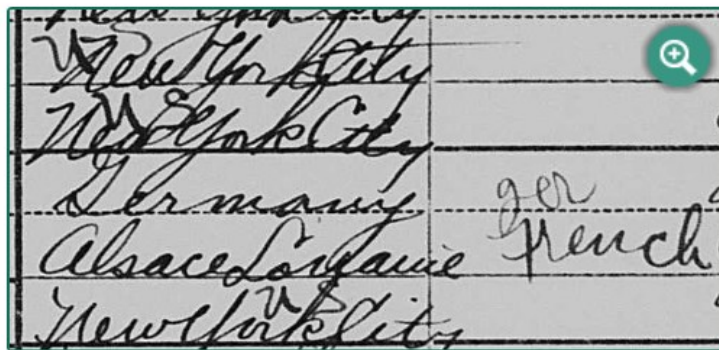 New York City
US
New York City
US
New York City
Germany ger
Alsace Lorraine French
US
New York City